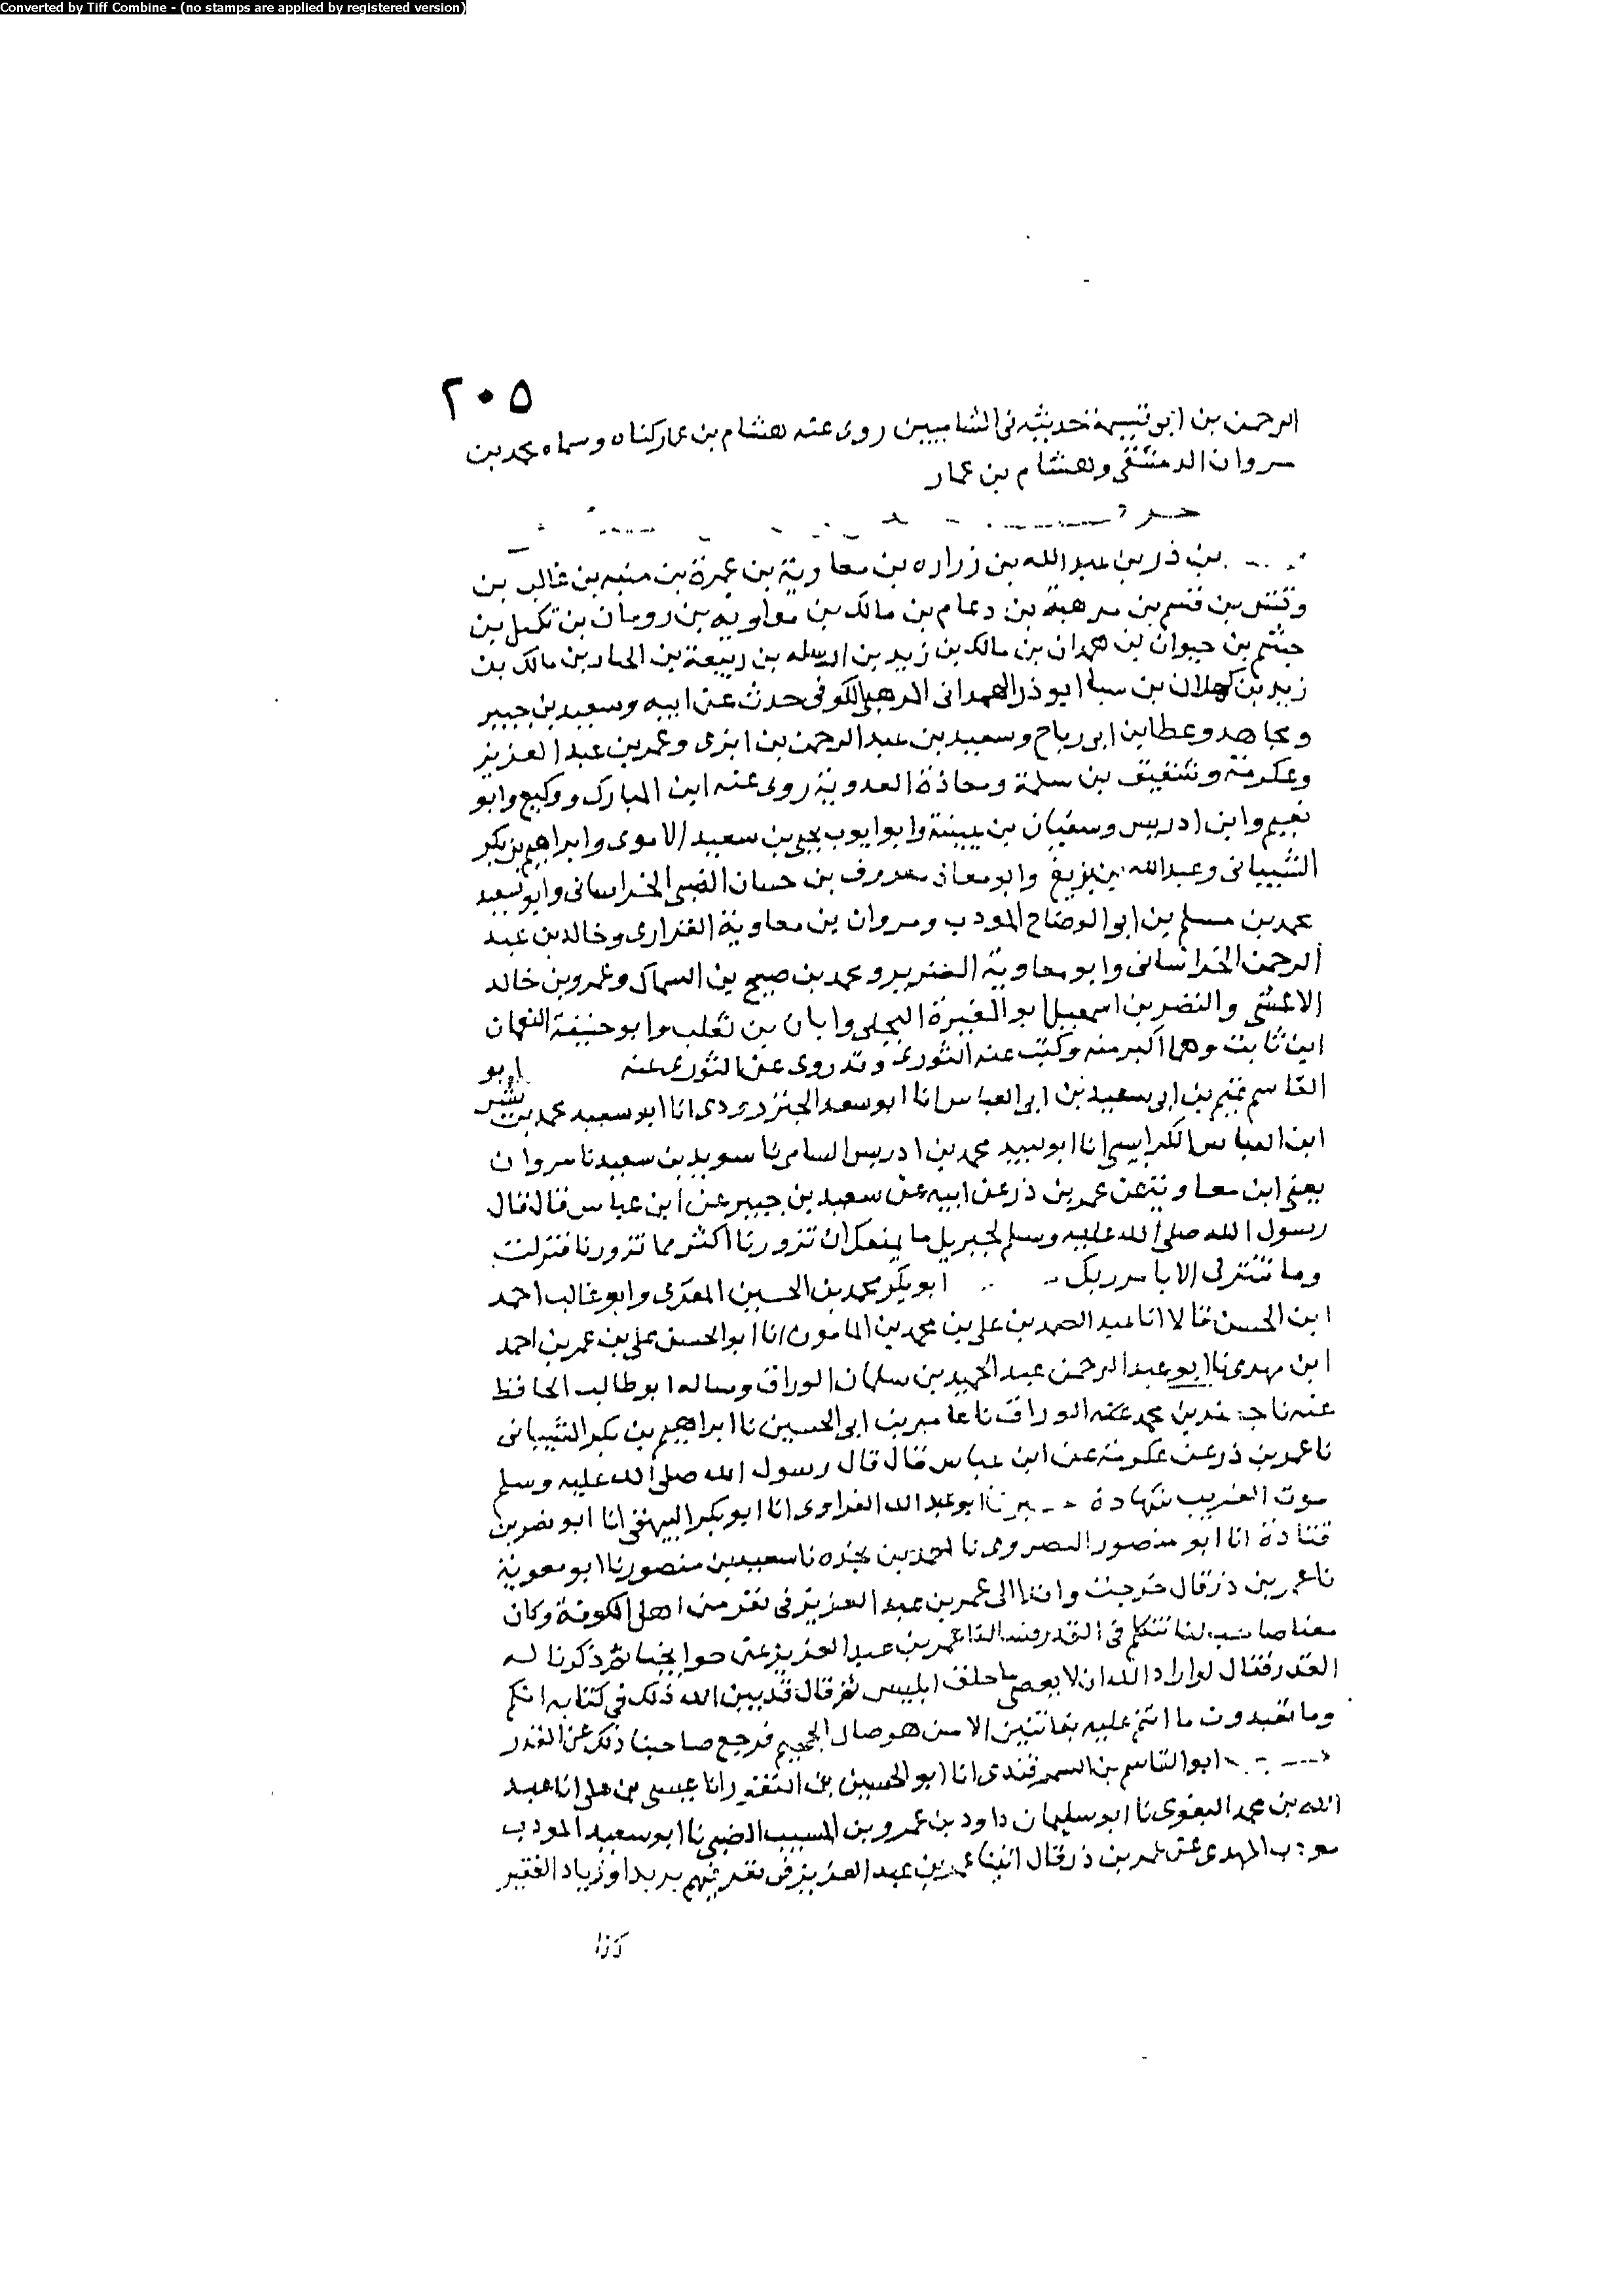 Converted by Tiff Combine - (no stamps are applied by registered version)
٢٠٥
الرحمن بن ابو قتيبة حديثه فى الشاميين روى عنه هشام بن عمار كناه وسماه محمد بن
مروان الدمشقى وهشام بن عمار
بن ذر بن عبد الله بن زراره بن معاوية بن عميرة بن منبه بن غالب بن
وقش بن قسم بن مرهبة بن دعام بن مالك بن معاويه بن رومان بن تكيل بن
جشم بن حيوان بن همدان بن مالك بن زيد بن اوسله بن ربيعة بن الخيار بن مالك بن
زيد بن كهلان بن سبا ابو ذر الهمدانى المرهبى الكوفى حدث عن ابيه وسعيد بن جبير
ومجاهد وعطا بن ابى رباح وسعيد بن عبد الرحمن بن ابزى وعمر بن عبد العزيز
وعكرمة وشقيق بن سلمة ومعاذة العدوية روى عنه ابن المبارك ووكيع وابو
نعيم وابن ادريس وسفيان بن عيينة وابو ايوب يحيى بن سعيد الاموى وابراهيم بن بكر
الشيبانى وعبد الله بن بزيغ وابو معاذ معروف بن حسان الضبى الخراسانى وابو سعيد
محمد بن مسلم بن ابى الوضاح المودب ومروان بن معاوية الفزارى وخالد بن عبد
الرحمن الخراسانى وابو معاوية الضرير ومحمد بن صبيح بن السماك وعمرو بن خالد
الاعشى والنضر بن اسمعيل ابو المغيرة البجلى وابان بن تغلب وابو حنيفة النعمان
ابن ثابت وهما اكبر منه وكتب عنه الثورى وقد روى عن الثورى عنه ابو
القاسم تميم بن ابى سعيد بن ابى العباس انا ابو سعد الجنزرودى انا ابو سعيد محمد بن بشر
ابن العباس الكرابيسى انا ابو لبيد محمد بن ادريس السامى نا سويد بن سعيد نا مروان
يعنى ابن معاوية عن عمر بن ذر عن ابيه عن سعيد بن جبير عن ابن عباس قال قال
رسول الله صلى الله عليه وسلم لجبريل ما يمنعك ان تزورنا اكثر مما تزورنا فنزلت
وما نتنزل الا بامر ربك ابو بكر محمد بن الحسين المقرى وابو غالب احمد
ابن الحسن قالا انا عبد الصمد بن على بن محمد بن المامون انا ابو الحسن على بن عمر بن احمد
ابن مهدى نا ابو عبد الرحمن عبد الحميد بن سلمان الوراق وساله ابو طالب الحافظ
عنه نا محمد الوراق نا عامر بن ابى الحسين نا ابراهيم بن بكر الشيبانى
نا عمر بن ذر عن عكرمة عن ابن عباس قال قال رسول الله صلى الله عليه وسلم
موت الغريب شهادة ابو عبد الله الفراوى انا ابو بكر البيهقى انا ابو نصر بن
قتادة انا ابو منصور النصروى نا احمد بن نجده نا سعيد بن منصور نا ابو معوية
نا عمر بن ذر قال خرجت وافدا الى عمر بن عبد العزيز فى نفر من اهل الكوفة وكان
معنا صاحب لنا نتكلم فى القدر فسالنا عمر بن عبد العزيز عن حوايجنا ثم ذكرنا له
القدر فقال لو اراد الله ان لا يعصى ما خلق ابليس ثم قال قد بين الله ذلك فى كتابه انكم
وما تعبدون ما انتم عليه بفاتنين الا من هو صال الجحيم فرجع صاحبنا ذلك عن القدر
ابو القاسم بن السمرقندى انا ابو الحسين بن النقور انا عيسى بن على انا عبد
الله بن محمد البغوى نا ابو سليمان داود بن عمرو بن المسيب الضبى نا ابو سعيد المودب
مودب المهدى عن عمر بن ذر قال اتينا عمر بن عبد العزيز فى نفر منهم يزيد او زياد الفقير